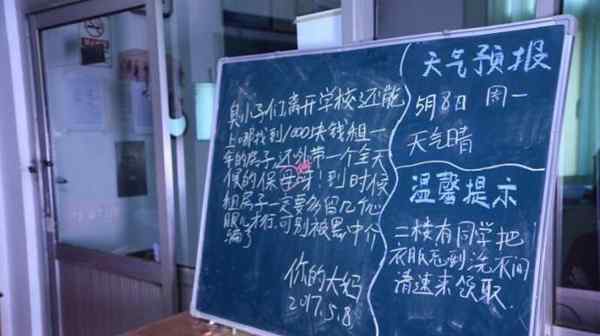 臭小子们离开学校还能
上哪找到1000块钱租一
年的房子,还外带一个全天
候的保母呀!到时候
租房子一定要多留几个心
眼儿才行,可别被黑中介
骗了
你的大妈
2017.5.8
天气预报
5月8日 周一
天气晴
温馨提示
二楼有同学把
衣服忘到洗衣间
请速来领取.